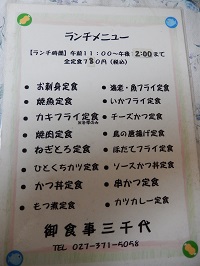 ランチメニュー
【ランチ時間】午前11:00～午後2:00まで
全定食780円(税込)
・お刺身定食
・海老・魚フライ定食
・焼魚定食
・いかフライ定食
・カキフライ定食
・チーズかつ定食
・焼肉定食
・鳥の唐揚げ定食
・ねぎとろ定食
・ほたてフライ定食
・ひとくちカツ定食
・ソースかつ丼定食
・かつ丼定食
・串かつ定食
・もつ煮定食
・カツカレー定食
御食事三千代
TEL 027-371-5058